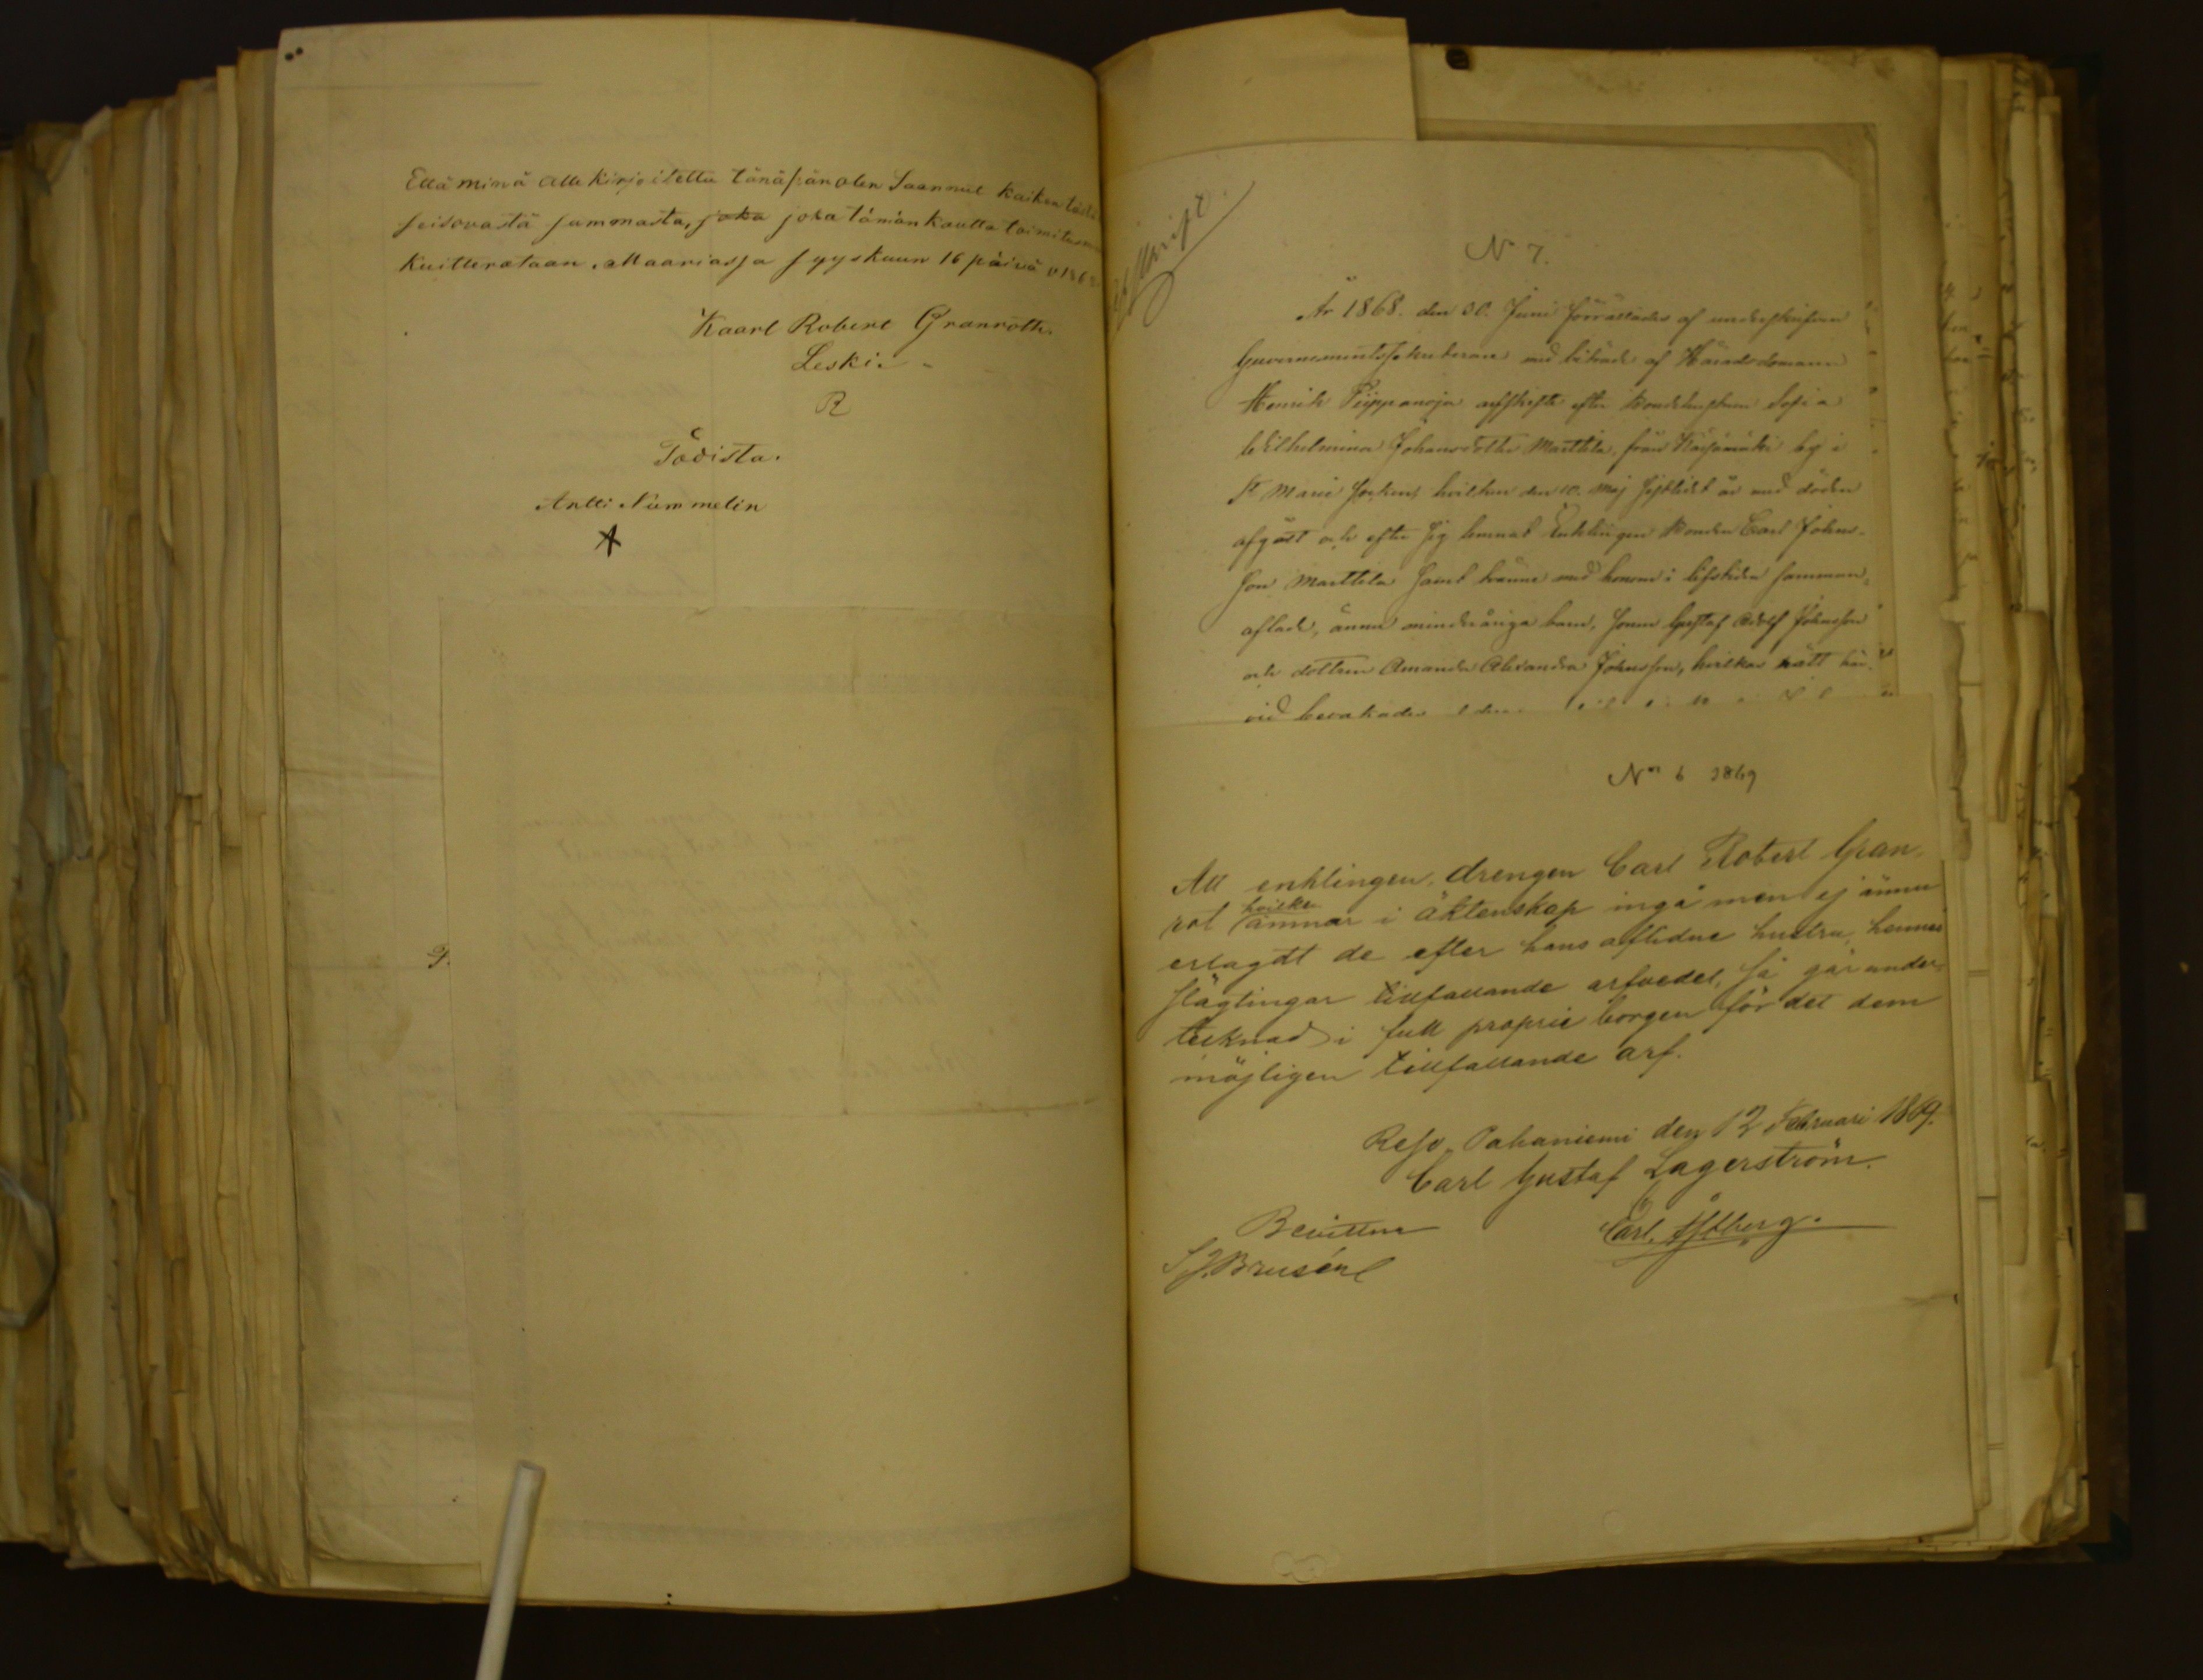 Että minä Allekirjoitettu tänäpän olen Saannut kaiken tästä
seisovasta summasta, joka joka tämän kautta toimitus
kuitterataan. Maariassa syyskuun 16 päivä v 186
Kaarl Robert Granroth
Leski
R
Todista.
Antti Nummelin
Afskrift.
N 7.
År 1868. den 30. Juni förrättades af underskrifven
Guvernementssekreterare med biträde af Häradsdomaren
Henrik Piippanoja arfskifte efter Bondehustrun Sofia
Wilhelmina Johansdotter Marttila, från Räsämäki by i
St Marie socken, hvilken den 10. Maj sistlidet år med döden
afgått och efter sig lemnat Enklingen Bonden Carl Johns-
son Marttila samt tvänne med honom i lifstiden samman-
aflade, ännu minderåriga barn, sonen Gustaf Adolf Johnsson
och dottren Amanda Alexandra Johnsson, hvilkas rätt här-
vid bevakades
No 6 1869
Att enklingen, drengen Carl Robert Gran,
rot hvilken ämnar i äktenskap ingå men ej ännu
erlagdt de efter hans aflidne hustru, hennes
slägtingar tillfallande arfvedel, så går under-
tecknad i full proprie borgen för det dem
möjligen tillfallande arf.
Reso Pahaniemi den 12 Februari 1869.
Carl Gustaf Lagerström.
Bevittna
Carl
S J. Brusén